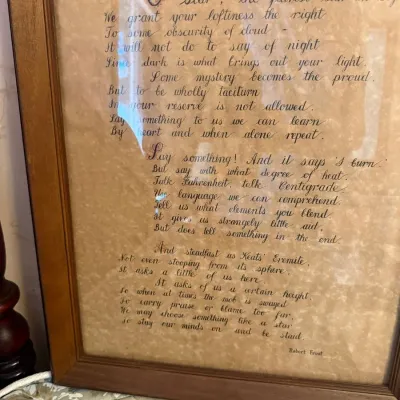 Star, the fairest one in
We grant your loftiness the right
To some obscurity of cloud -
It will not do to say of night
Since dark is what brings out your light.
Some mystery becomes the proud.
But to be wholly taciturn
In your reserve is not allowed.
Say something to us we can learn
By heart and when alone repeat.
Say something! And it says 'I burn.'
But say with what degree of heat.
Talk Fahrenheit, talk Centigrade.
Use language we can comprehend.
Tell us what elements you blend.
It gives us strangely little aid,
But does tell something in the end.
And steadfast as Keats' Eremite,
Not even stooping from its sphere,
It asks a little of us here.
It asks of us a certain height,
So when at times the mob is swayed
To carry praise or blame too far,
We may choose something like a star
To stay our minds on and be staid.
Robert Frost